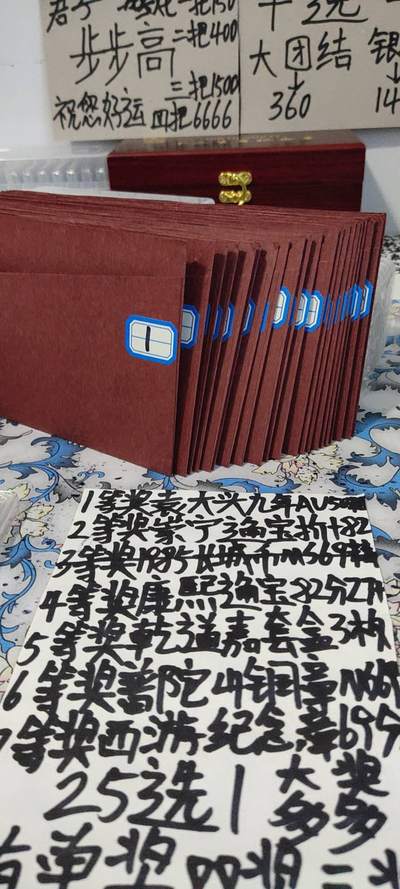 一把150
步步高 二把400
三把1500
祝您好运 四把6666
选一
大团结
360
银
14
1
1等奖袁大头九年AU50
2等奖崇宁通宝折十82
3等奖1985长城币MS69
4等奖康熙通宝82分
5等奖乾道嘉套盒3枚
6等奖普陀山铜章MS69
7等奖西游纪念章69
25选1 大奖多多